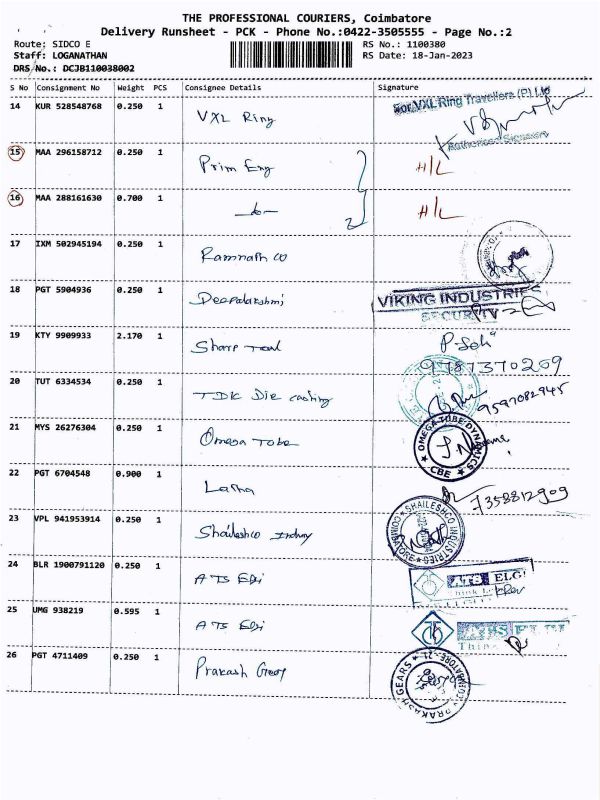 THE PROFESSIONAL COURIERS, Coimbatore
Delivery Runsheet - PCK - Phone No.:0422-3505555 - Page No.:2
Route: SIDCO E RS No.: 1100380
Staff: LOGANATHAN RS Date: 18-Jan-2023
DRS No.: DCJB110038002
S No Consignment No Weight PCS Consignee Details Signature
14 KUR 528548768 0.250 1 VXL Ring For VXL Ring Travellers (P) Ltd
Authorised Signatory
15 MAA 296158712 0.250 1 Prim Eng H/L
16 MAA 288161630 0.700 1 H/L
17 IXM 502945194 0.250 1 Ramnath co
18 PGT 5904936 0.250 1 Deepalakshmi VIKING INDUSTRIES
SECURITY
19 KTY 9909933 2.170 1 Sharp Tool
9787370209
20 TUT 6334534 0.250 1 TDK Die casting 9597082945
21 MYS 26276304 0.250 1 Omega Tube OMEGA TUBE DYNAMICS CBE
22 PGT 6704548 0.900 1 Latha 7358812909
23 VPL 941953914 0.250 1 Shaileshco SHAILESHCO INDUSTRIES COIMBATORE
24 BLR 1900791120 0.250 1 ATS Elgi ATS ELGI
25 UMG 938219 0.595 1 ATS Elgi ATS ELGI
26 PGT 4711409 0.250 1 Prakash Gear PRAKASH GEARS